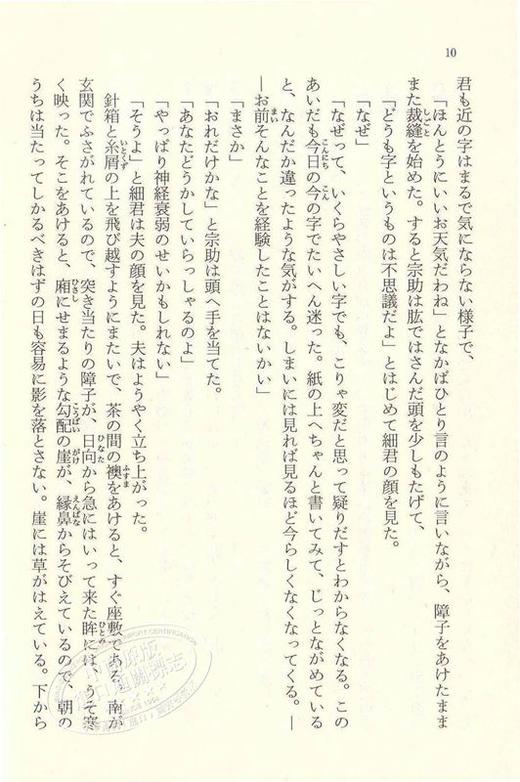 10
君も近の字はまるで気にならない様子で、
「ほんとうにいいお天気だわね」となかばひとり言のように言いながら、障子をあけたまま
また裁縫を始めた。すると宗助は肱ではさんだ頭を少しもたげて、
「どうも字というものは不思議だよ」とはじめて細君の顔を見た。
「なぜ」
「なぜって、いくらやさしい字でも、こりゃ変だと思って疑りだすとわからなくなる。この
あいだも今日の今の字でたいへん迷った。紙の上へちゃんと書いてみて、じっとながめている
と、なんだか違ったような気がする。しまいには見れば見るほど今らしくなくなってくる。―
―お前そんなことを経験したことはないかい」
「まさか」
「おれだけかな」と宗助は頭へ手を当てた。
「あなたどうかしていらっしゃるのよ」
「やっぱり神経衰弱のせいかもしれない」
「そうよ」と細君は夫の顔を見た。夫はようやく立ち上がった。
針箱と糸屑の上を飛び越すようにまたいで、茶の間の襖をあけると、すぐ座敷である。南が
玄関でふさがれているので、突き当たりの障子が、日向から急にはいって来た眸には、うそ寒
く映った。そこをあけると、廂にせまるような勾配の崖が、縁鼻からそびえているので、朝の
うちは当たってしかるべきはずの日も容易に影を落とさない。崖には草がはえている。下から